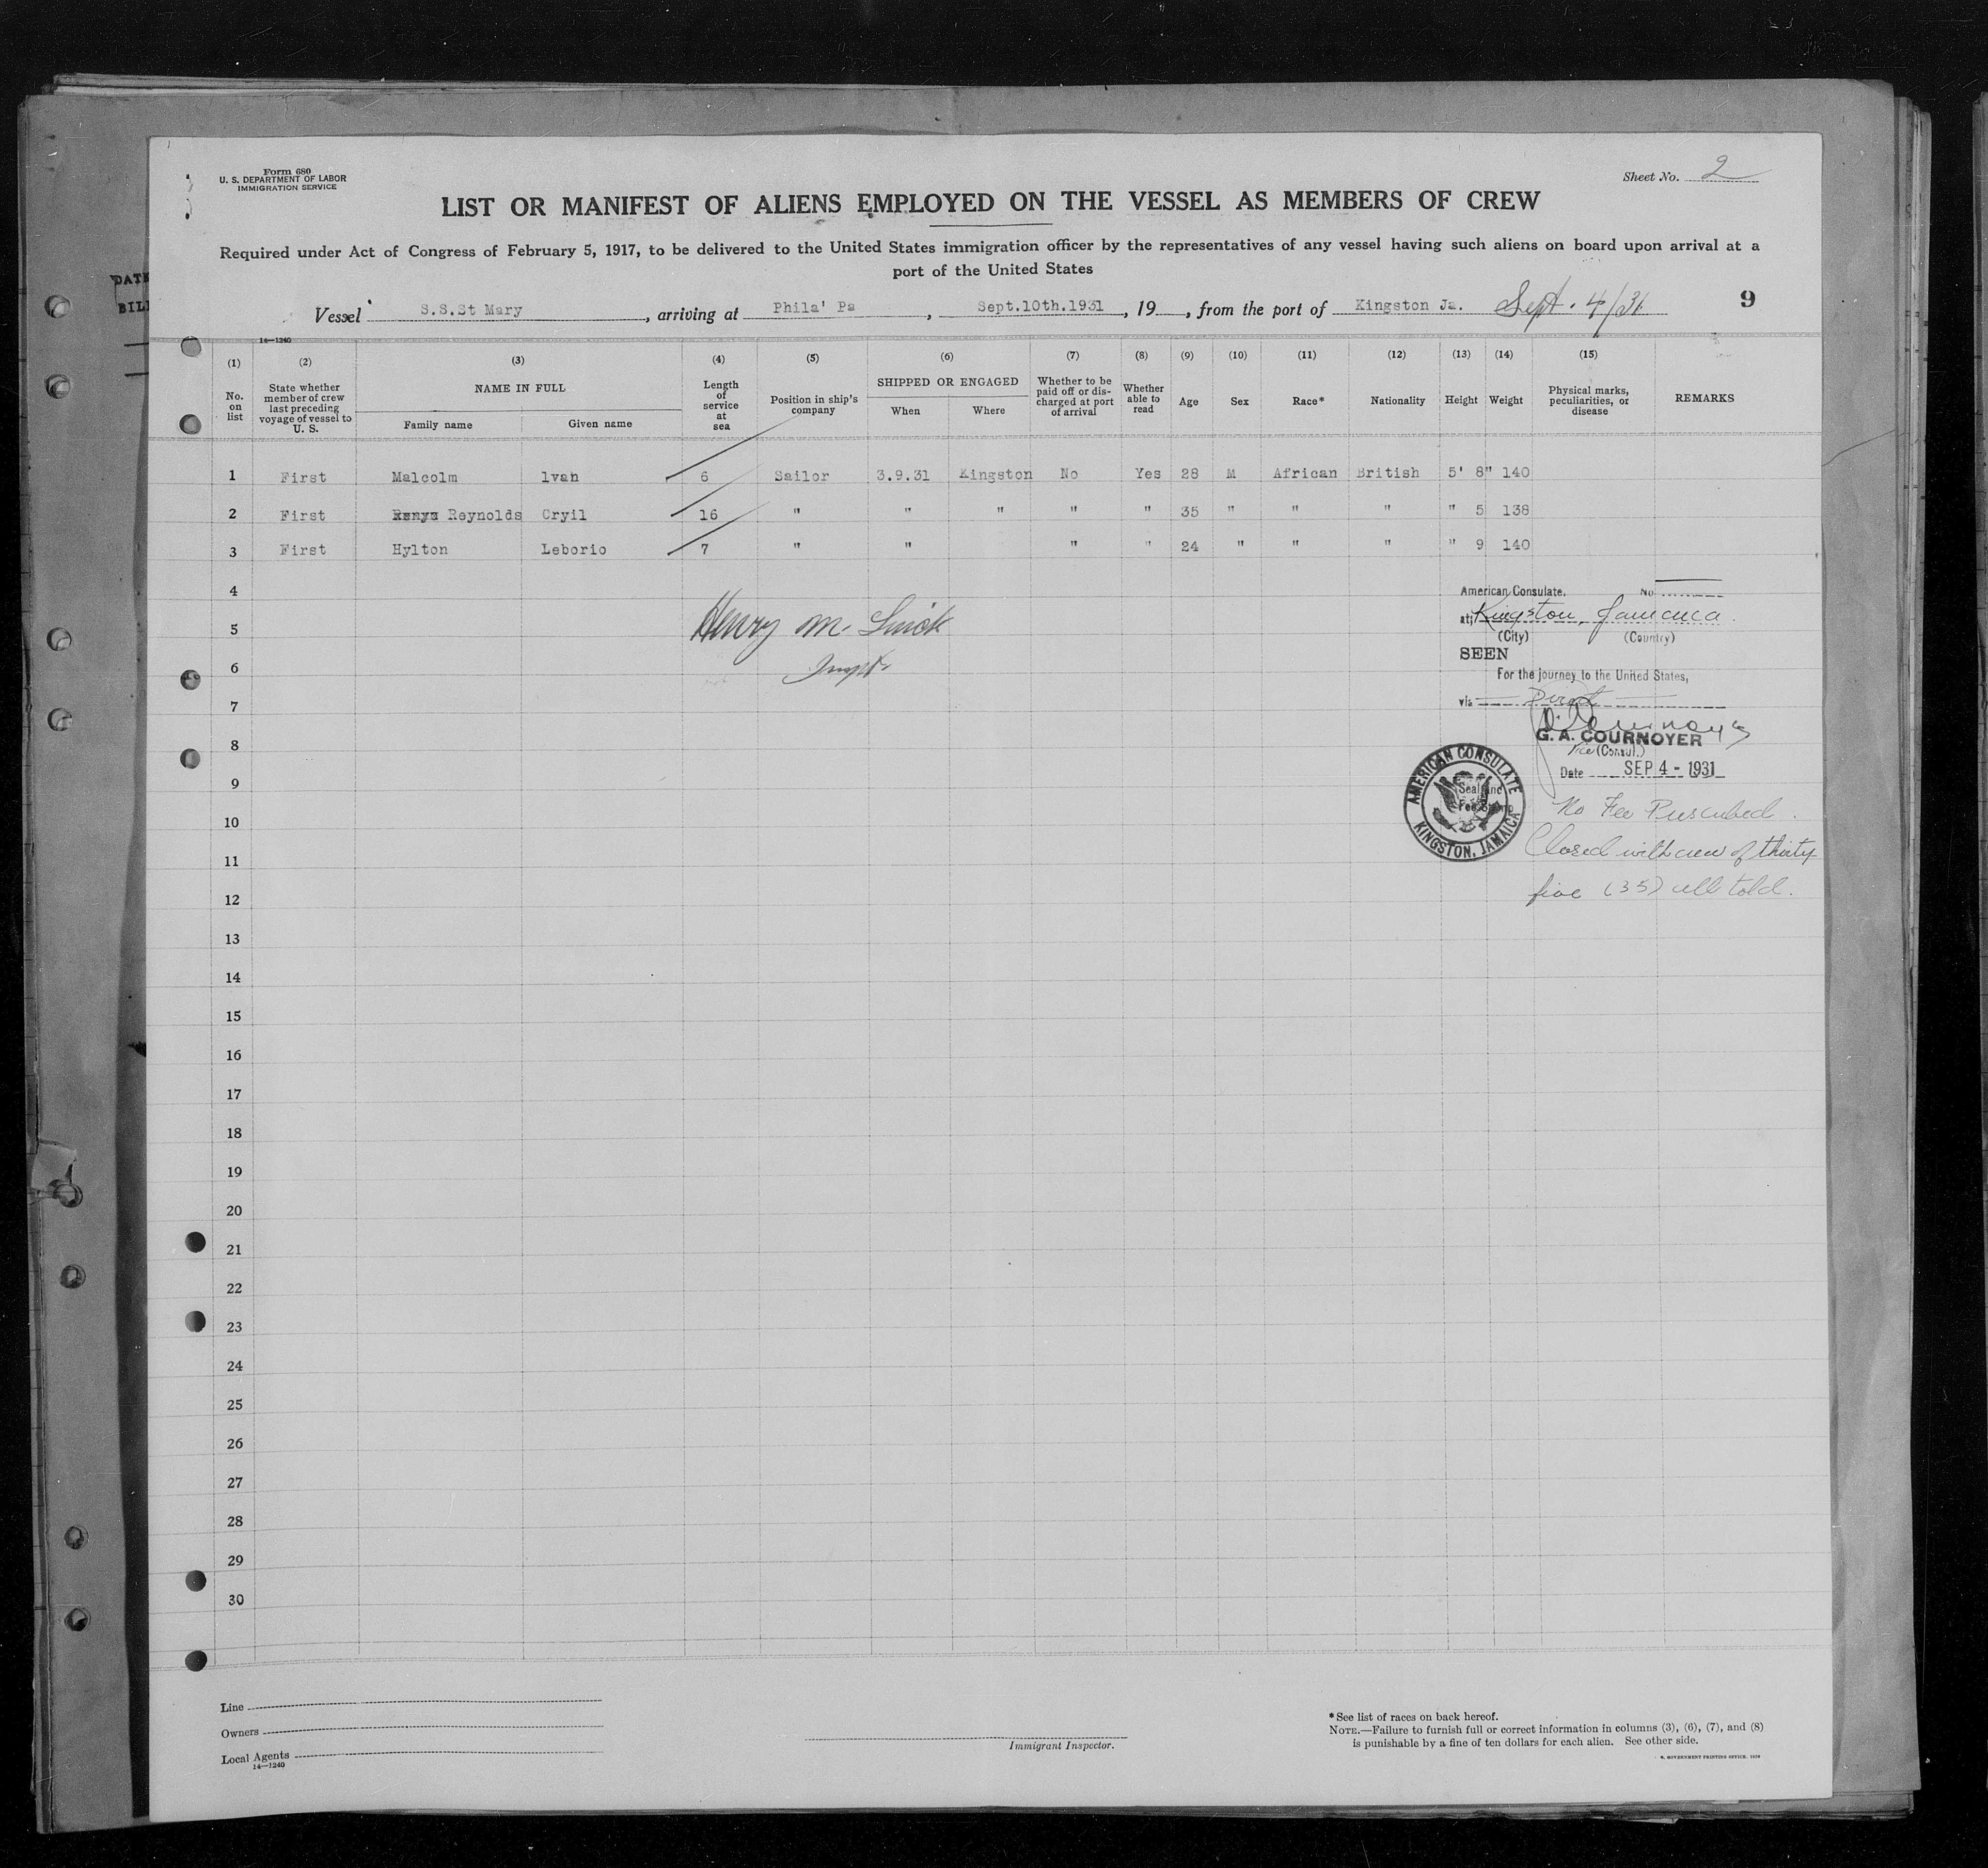 Form 680
U. S. DEPARTMENT OF LABOR
IMMIGRATION SERVICE
Sheet No. 2
LIST OR MANIFEST OF ALIENS EMPLOYED ON THE VESSEL AS MEMBERS OF CREW
Required under Act of Congress of February 5, 1917, to be delivered to the United States immigration officer by the representatives of any vessel having such aliens on board upon arrival at a
port of the United States
DATE
BILL
Vessel S.S.St Mary, arriving at Phila' Pa, Sept.10th.1931, 19, from the port of Kingston Ja. Sept. 4/31 9
14—1240
(1) (2) (3) (4) (5) (6) (7) (8) (9) (10) (11) (12) (13) (14) (15)
No. on list
State whether member of crew last preceding voyage of vessel to U. S.
NAME IN FULL
Family name Given name
Length of service at sea
Position in ship's company
SHIPPED OR ENGAGED
When Where
Whether to be paid off or discharged at port of arrival
Whether able to read
Age Sex Race* Nationality Height Weight
Physical marks, peculiarities, or disease
REMARKS
1 First Malcolm lvan 6 Sailor 3.9.31 Kingston No Yes 28 M African British 5' 8" 140
2 First Reynolds Cryil 16 " " " " " 35 " " " " 5 138
3 First Hylton Leborio 7 " " " " 24 " " " " 9 140
4
5
6
7
8
9
10
11
12
13
14
15
16
17
18
19
20
21
22
23
24
25
26
27
28
29
30
Henry M.
American Consulate. No
at Kingston, Jamaica.
(City) (Country)
SEEN
For the journey to the United States,
via Direct
G. A. COURNOYER
Vice (Consul.)
Date SEP 4 - 1931
AMERICAN CONSULATE
KINGSTON, JAMAICA
Seal and
Fee Stamp
No Fee Prescribed.
Closed with crew of thirty
five (35) all told.
Line
Owners
Local Agents
14—1240
Immigrant Inspector.
*See list of races on back hereof.
NOTE.—Failure to furnish full or correct information in columns (3), (6), (7), and (8)
is punishable by a fine of ten dollars for each alien. See other side.